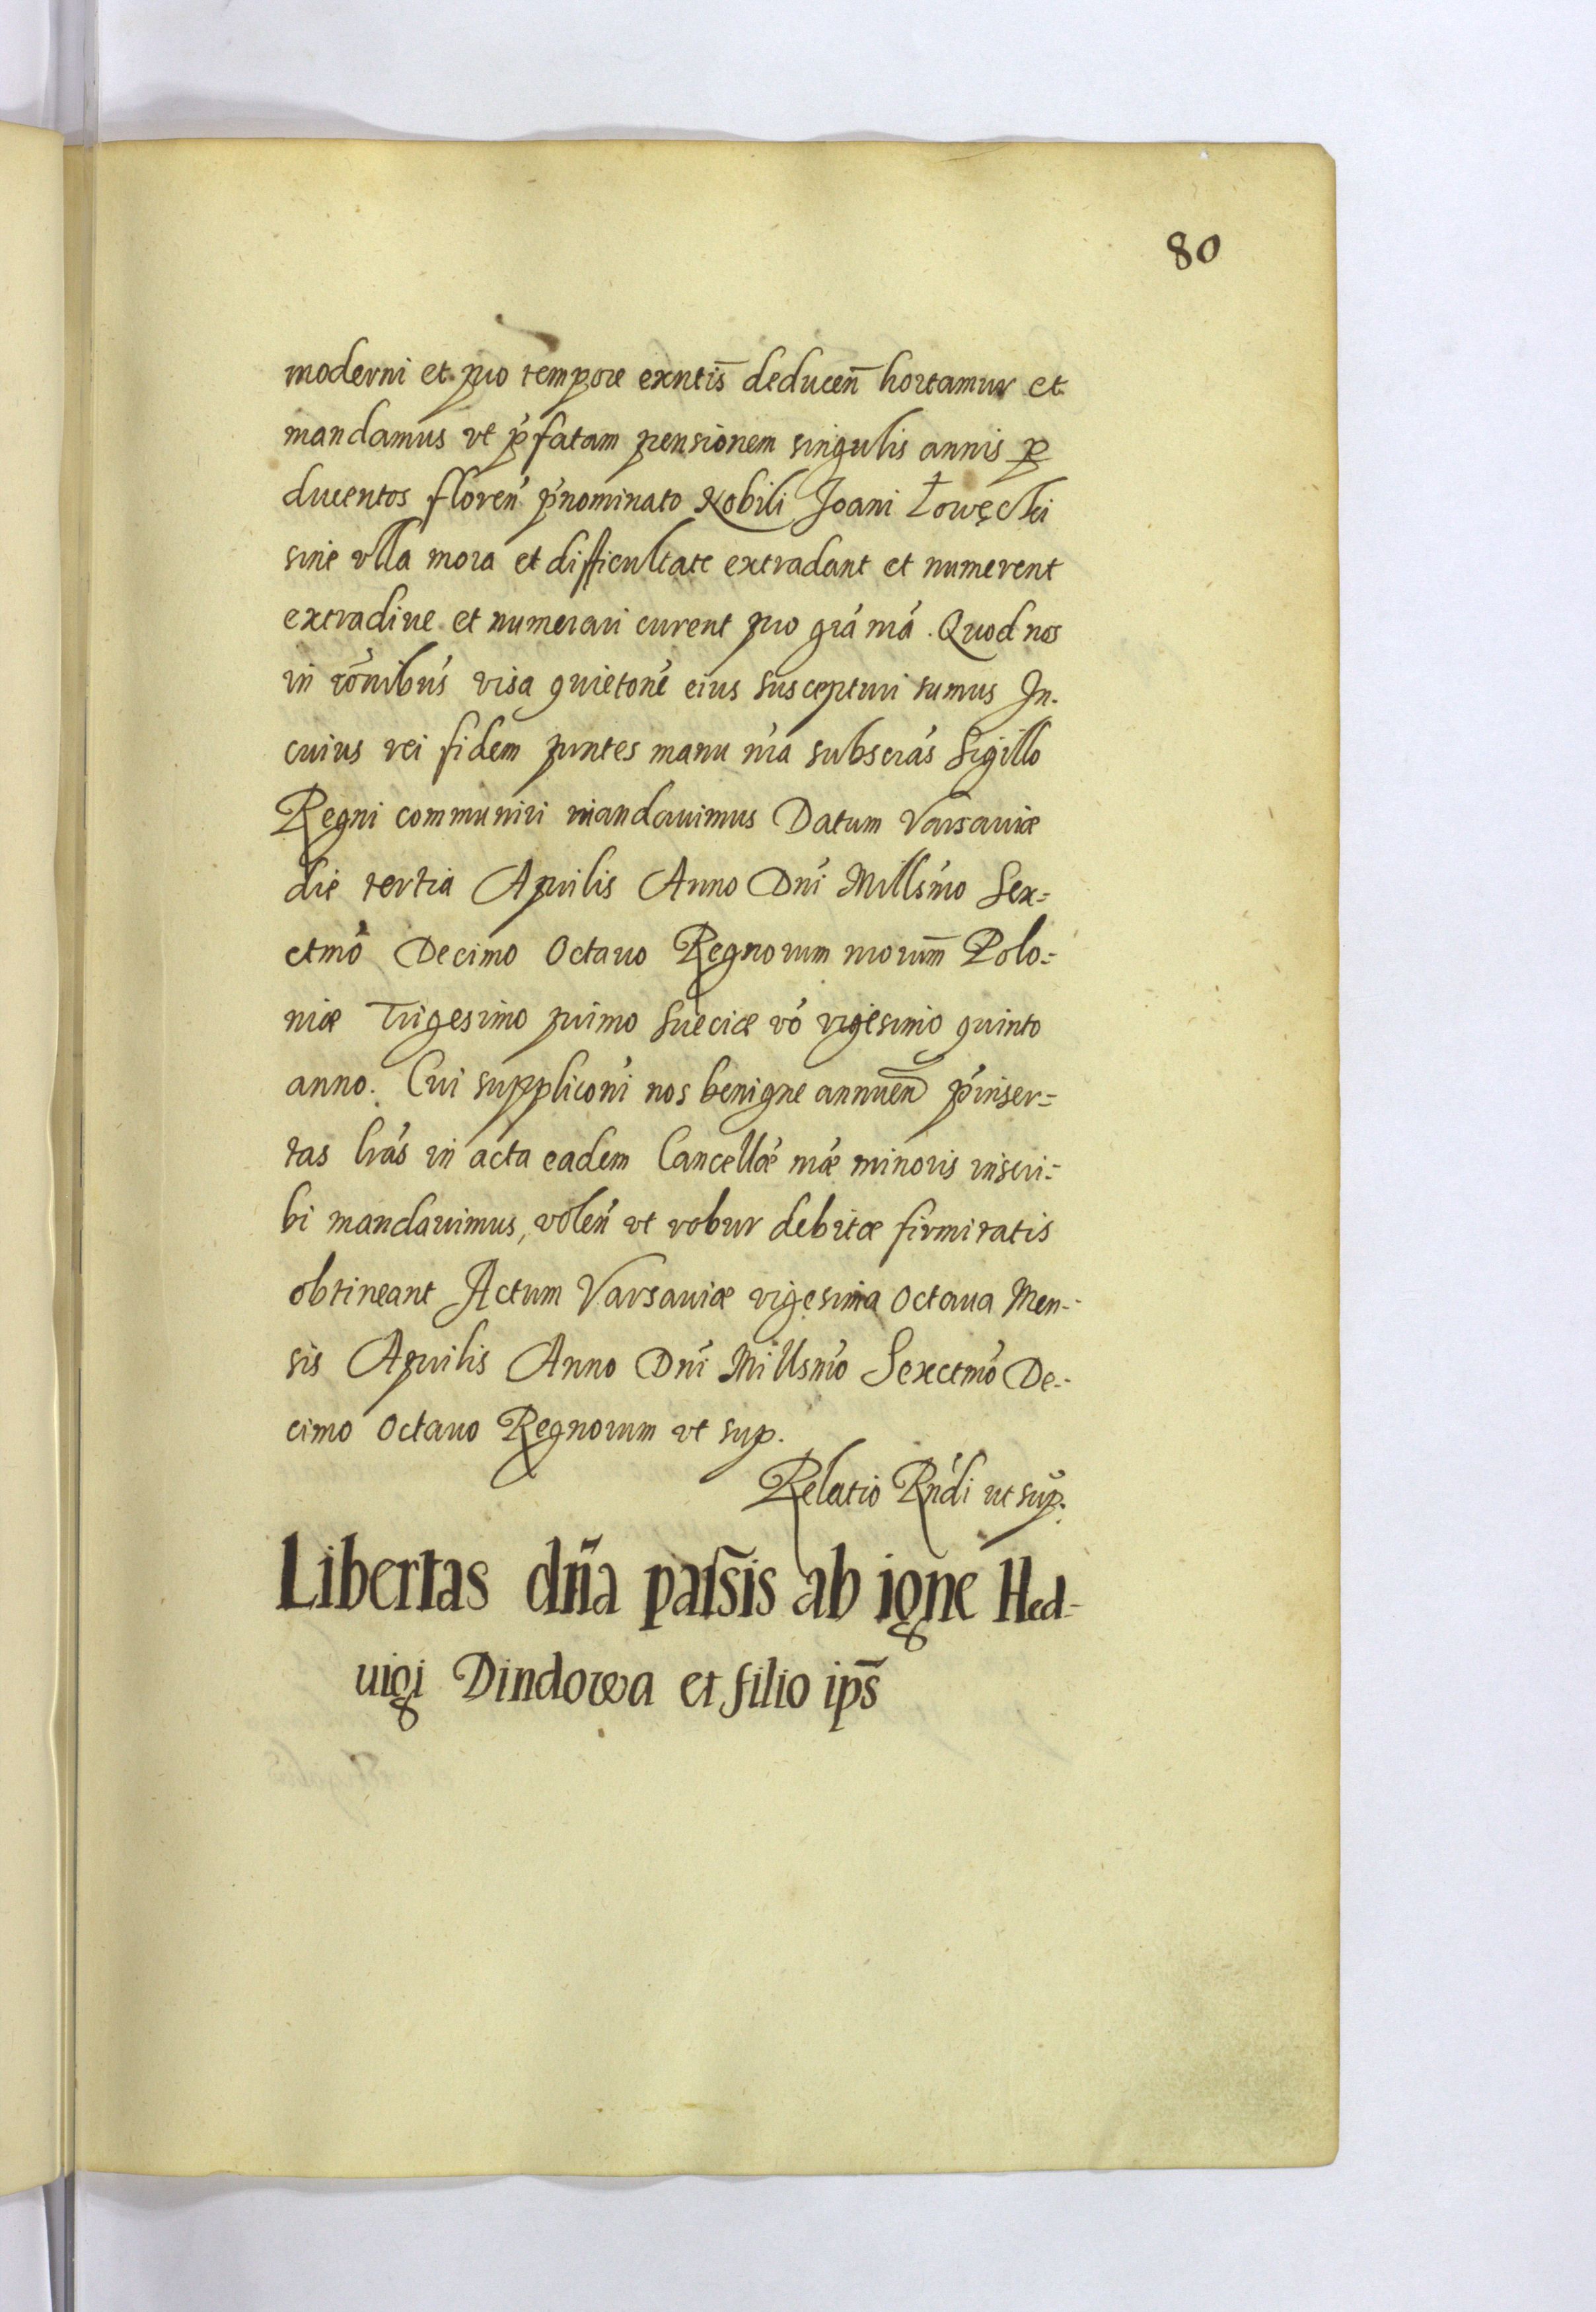 80
moderni et pro tempore exntis̄ deduceñ hortamur et
mandamus vt p̓fatam pensionem singulis annis ꝑ
ducentos floreń p̓nominato Nobili Joani Łowęcki
sine vlla mora et difficultate extradant et numerent
extradive et numerari curent pro grá nrá. Quod nos
in rónibús visa quietoné eius suscepturi sumus In-
cuius rei fidem pntes manu nrá subscrás Sigillo
Regni communiri mandauimus Datum Varsauiæ
die tertia Aprilis Anno Dńi Millsḿo Sex=
ctmó Decimo Octauo Regnorum nrorum̄ Polo=
niæ Trigesimo primo Sueciæ vó vigesimo quinto
anno. Cui supplicońi nos benigne annueñ p̓inser=
tas lrás in acta eadem Cancellǽ nrǽ minoris inscri=
bi mandauimus, voleń vt robur debitæ firmitatis
obtineant Actum Varsauiæ vigesima octaua Men=
sis Aprilis Anno Dńi Millsḿo Sexctmó De=
cimo Octauo Regnorum vt sup.
Relatio Rńdi ut sup.
Libertas dña paſsis̄ ab igne Hed=
uigi Dindowa et filio ips̄